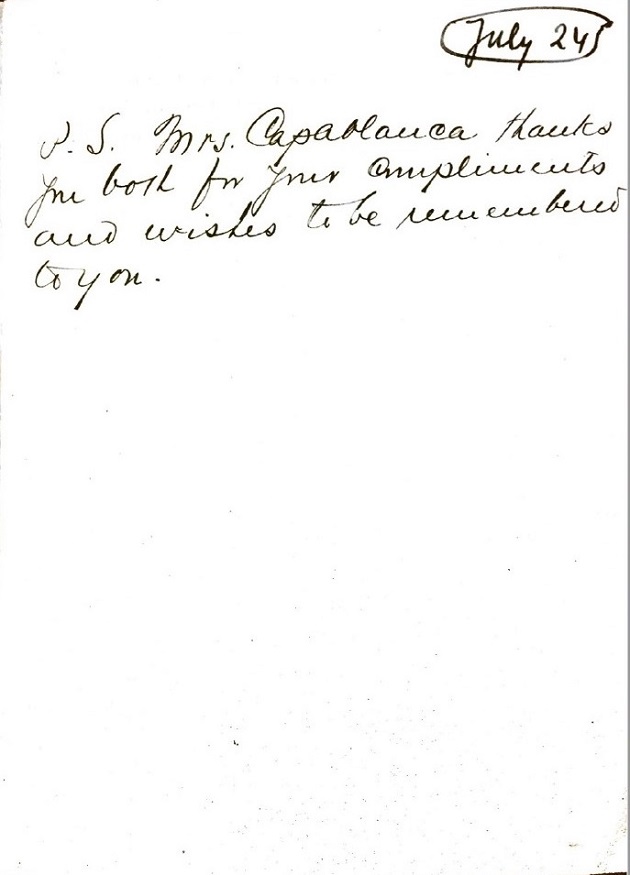 July 24
P.S. Mrs. Capablanca thanks
you both for your compliments
and wishes to be remembered
to you.